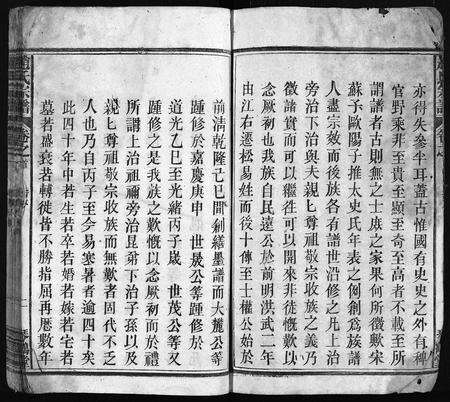 亦得失參半耳蓋古惟國有史史之外有稗
官野乘非至貴至顯至奇至高者不載至所
謂譜者古則無之士庶之家果何所徵歟宋
蘇子歐陽子推太史氏年表之例創爲族譜
人盡宗效而後族各有譜世沿修之凡上治
旁治下治與夫親親尊祖敬宗收族之義乃
徵諸實而可以繼往可以開來非徒慨歎以
念厥初也我族自民遠公於前明洪武二年
由江右遷松易姓而後十傳至士權公始於
前清乾隆己巳間創繕墨譜而大麓公等
踵修於嘉慶庚申 世晟公等踵修於
道光乙巳至光緒丙子歲 世茂公等又
踵修之是我族之歎慨以念厥初而於禮
所謂上治祖禰旁治昆弟下治子孫以及
親親尊祖敬宗收族而無歉者固代不乏
人也乃自丙子至今易寒暑者逾四十矣
此四十年中若生若卒若婚若嫁若宅若
墓若盛衰若轉徙皆不勝指屈再歷數年